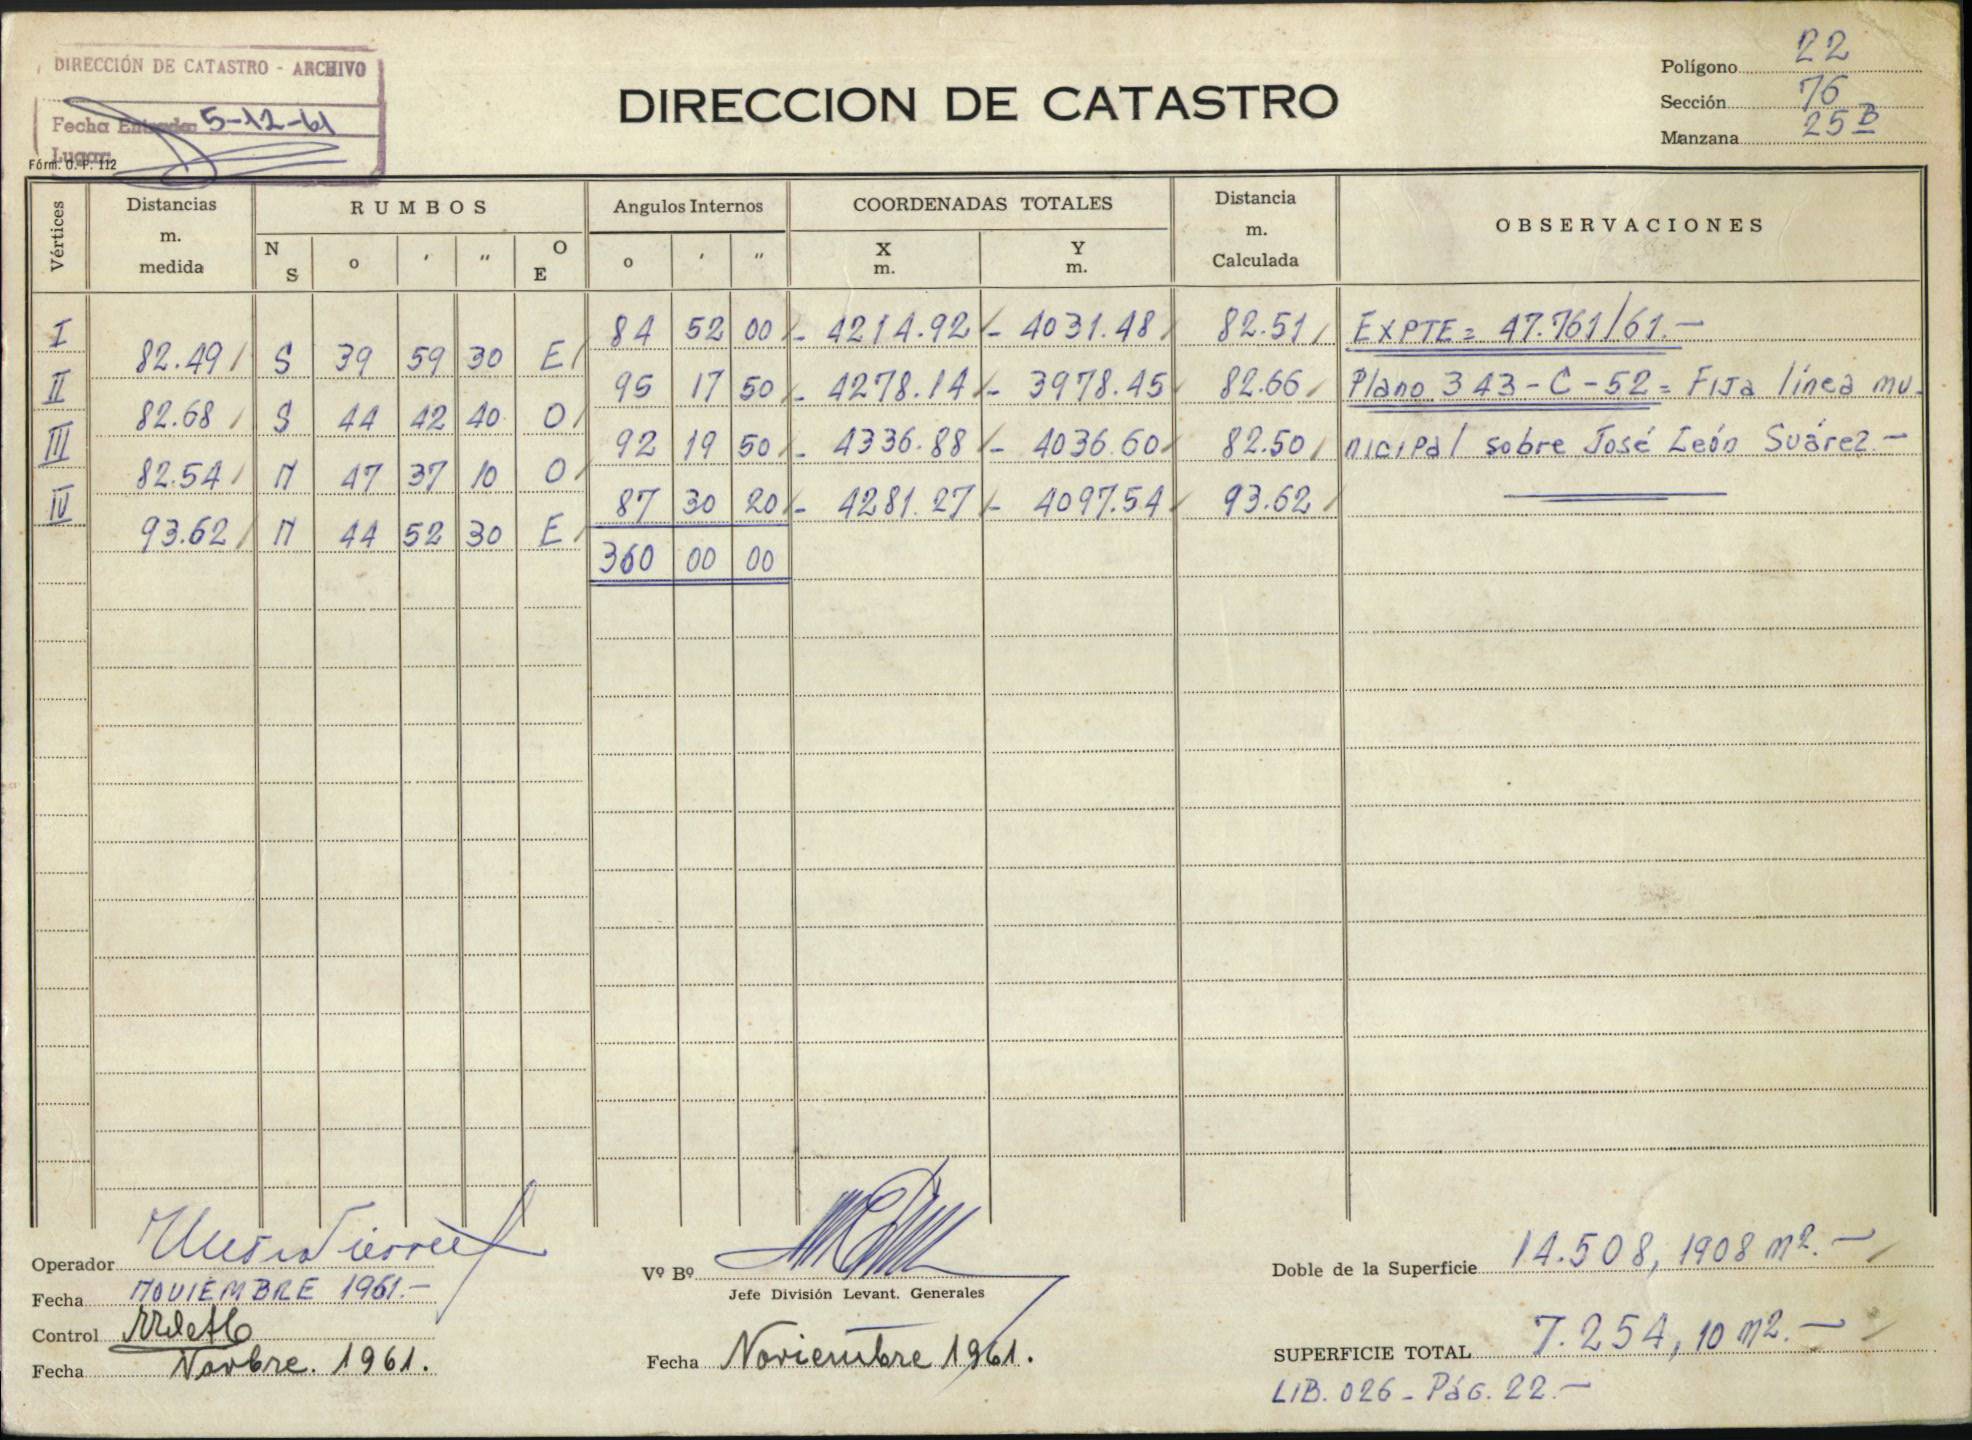 DIRECCIÓN DE CATASTRO - ARCHIVO
Fecha Entrada: 5-12-61
Lugar:
Fórm. O. P. 112
DIRECCION DE CATASTRO
Polígono 22
Sección 76
Manzana 25 B
Vértices
Distancias m. medida
RUMBOS
N S o ' " O E
Angulos Internos
o ' "
COORDENADAS TOTALES
X m. Y m.
Distancia m. Calculada
OBSERVACIONES
I 84 52 00 - 4214.92 - 4031.48 82.51 EXPTE = 47.761/61.-
82.49 S 39 59 30 E
II 95 17 50 - 4278.14 - 3978.45 82.66 Plano 343-C-52 = Fija línea mu-
82.68 S 44 42 40 O
III 92 19 50 - 4336.88 - 4036.60 82.50 nicipal sobre José León Suárez.-
82.54 N 47 37 10 O
IV 87 30 20 - 4281.27 - 4097.54 93.62
93.62 N 44 52 30 E
360 00 00
Operador
Fecha NOVIEMBRE 1961.-
Control
Fecha Novbre. 1961.
Vº Bº
Jefe División Levant. Generales
Fecha Noviembre 1961.
Doble de la Superficie 14.508,1908 m2.-
SUPERFICIE TOTAL 7.254,10 m2.-
LIB. 026 - Pág. 22.-